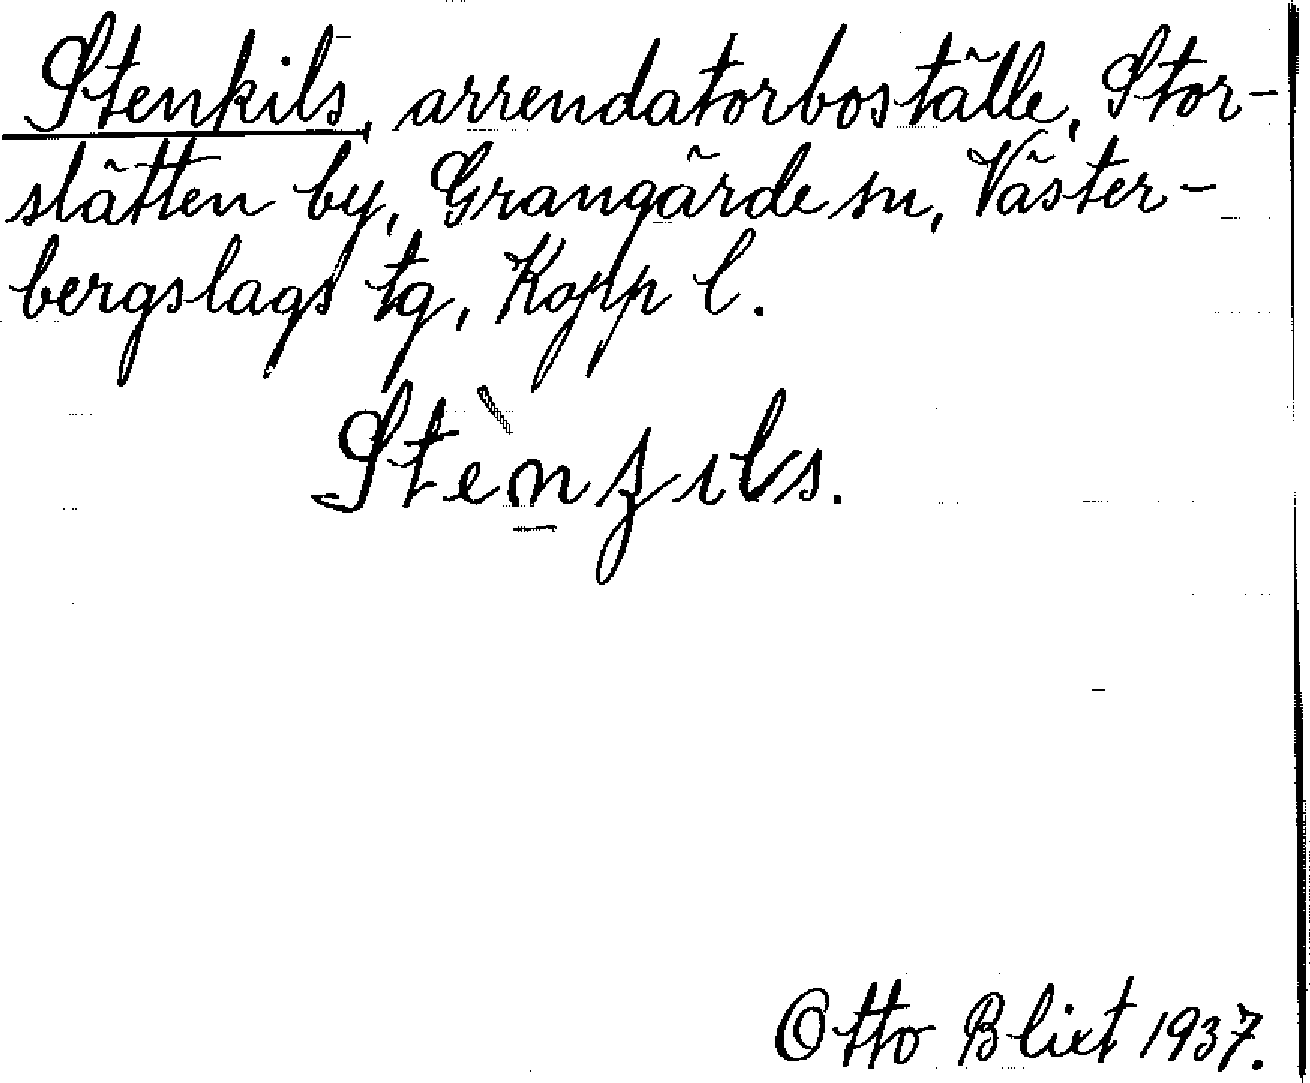 Stenkils, arrendatorboställe, Stor-
slätten by, Grangärde sn, Väster-
bergslags tg, Kopp l.
Stènʒıls.
Otto Blixt 1937.